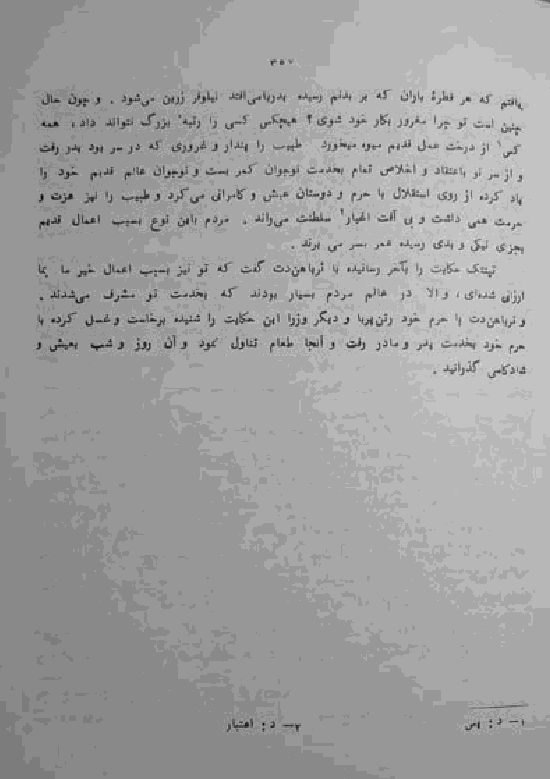 ۳۵۷
یافتم که هر قطرهٔ باران که بر بدنم رسیده بدریا می‌افتد نیلوفر زرین می‌شود. و چون حال
چنین است تو چرا مغرور بکار خود شوی؟ هیچکس کسی را رتبهٔ بزرگ نتواند داد، همه
کس۱ از درخت عمل قدیم میوه میخورد. طبیب را پندار و غروری که در سر بود بدر رفت
و از سر نو باعتقاد و اخلاص تمام بخدمت نوجوان کمر بست و نوجوان عالم قدیم خود را
یاد کرده از روی استقلال با حرم و دوستان عیش و کامرانی می‌کرد و طبیب را نیز عزت و
حرمت همی داشت و بی آفت اغیار۲ سلطنت می‌راند. مردم باین نوع بسبب اعمال قدیم
بجزی نیکی و بدی رسیده عمر بسر می برند.
تپنتک حکایت را بآخر رسانیده با نرباهن‌دت گفت که تو نیز بسبب اعمال خیر ما بما
ارزانی شده‌ای، والا در عالم مردم بسیار بودند که بخدمت تو مشرف می‌شدند.
و نرباهن‌دت با حرم خود رتن‌پربا و دیگر وزرا این حکایت را شنیده برخاست و غسل کرده با
حرم خود بخدمت پدر و مادر رفت و آنجا طعام تناول نمود و آن روز و شب بعیش و
شادکامی گذرانید.
۱ـ د: پس ۲ـ د: اعتبار